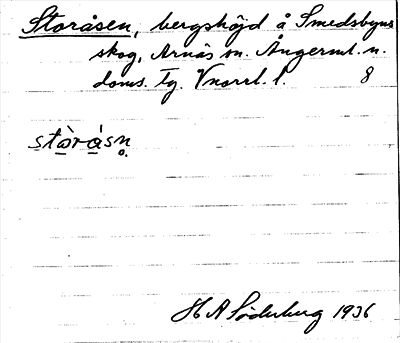 Storåsen, bergshöjd å Smedsbyns
skog, Arnäs sn. Ångerml. n.
doms. tg. Vnorrl. l. 8
stòrásn̥
H A Söderberg 1936